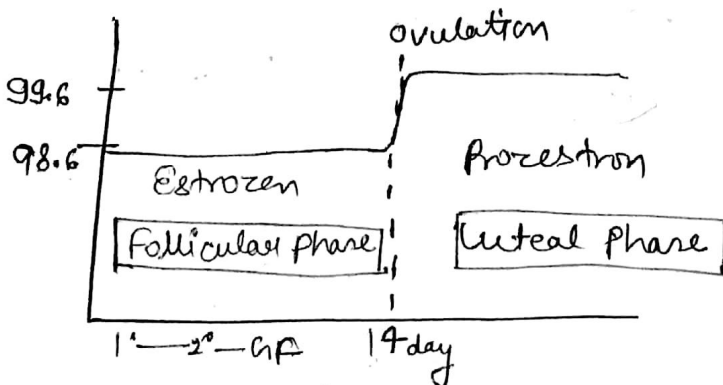 ovulation
99.6
98.6
Estrozen
Prozestron
Follicular phase
Luteal Phase
1°—2°—GF
14 day